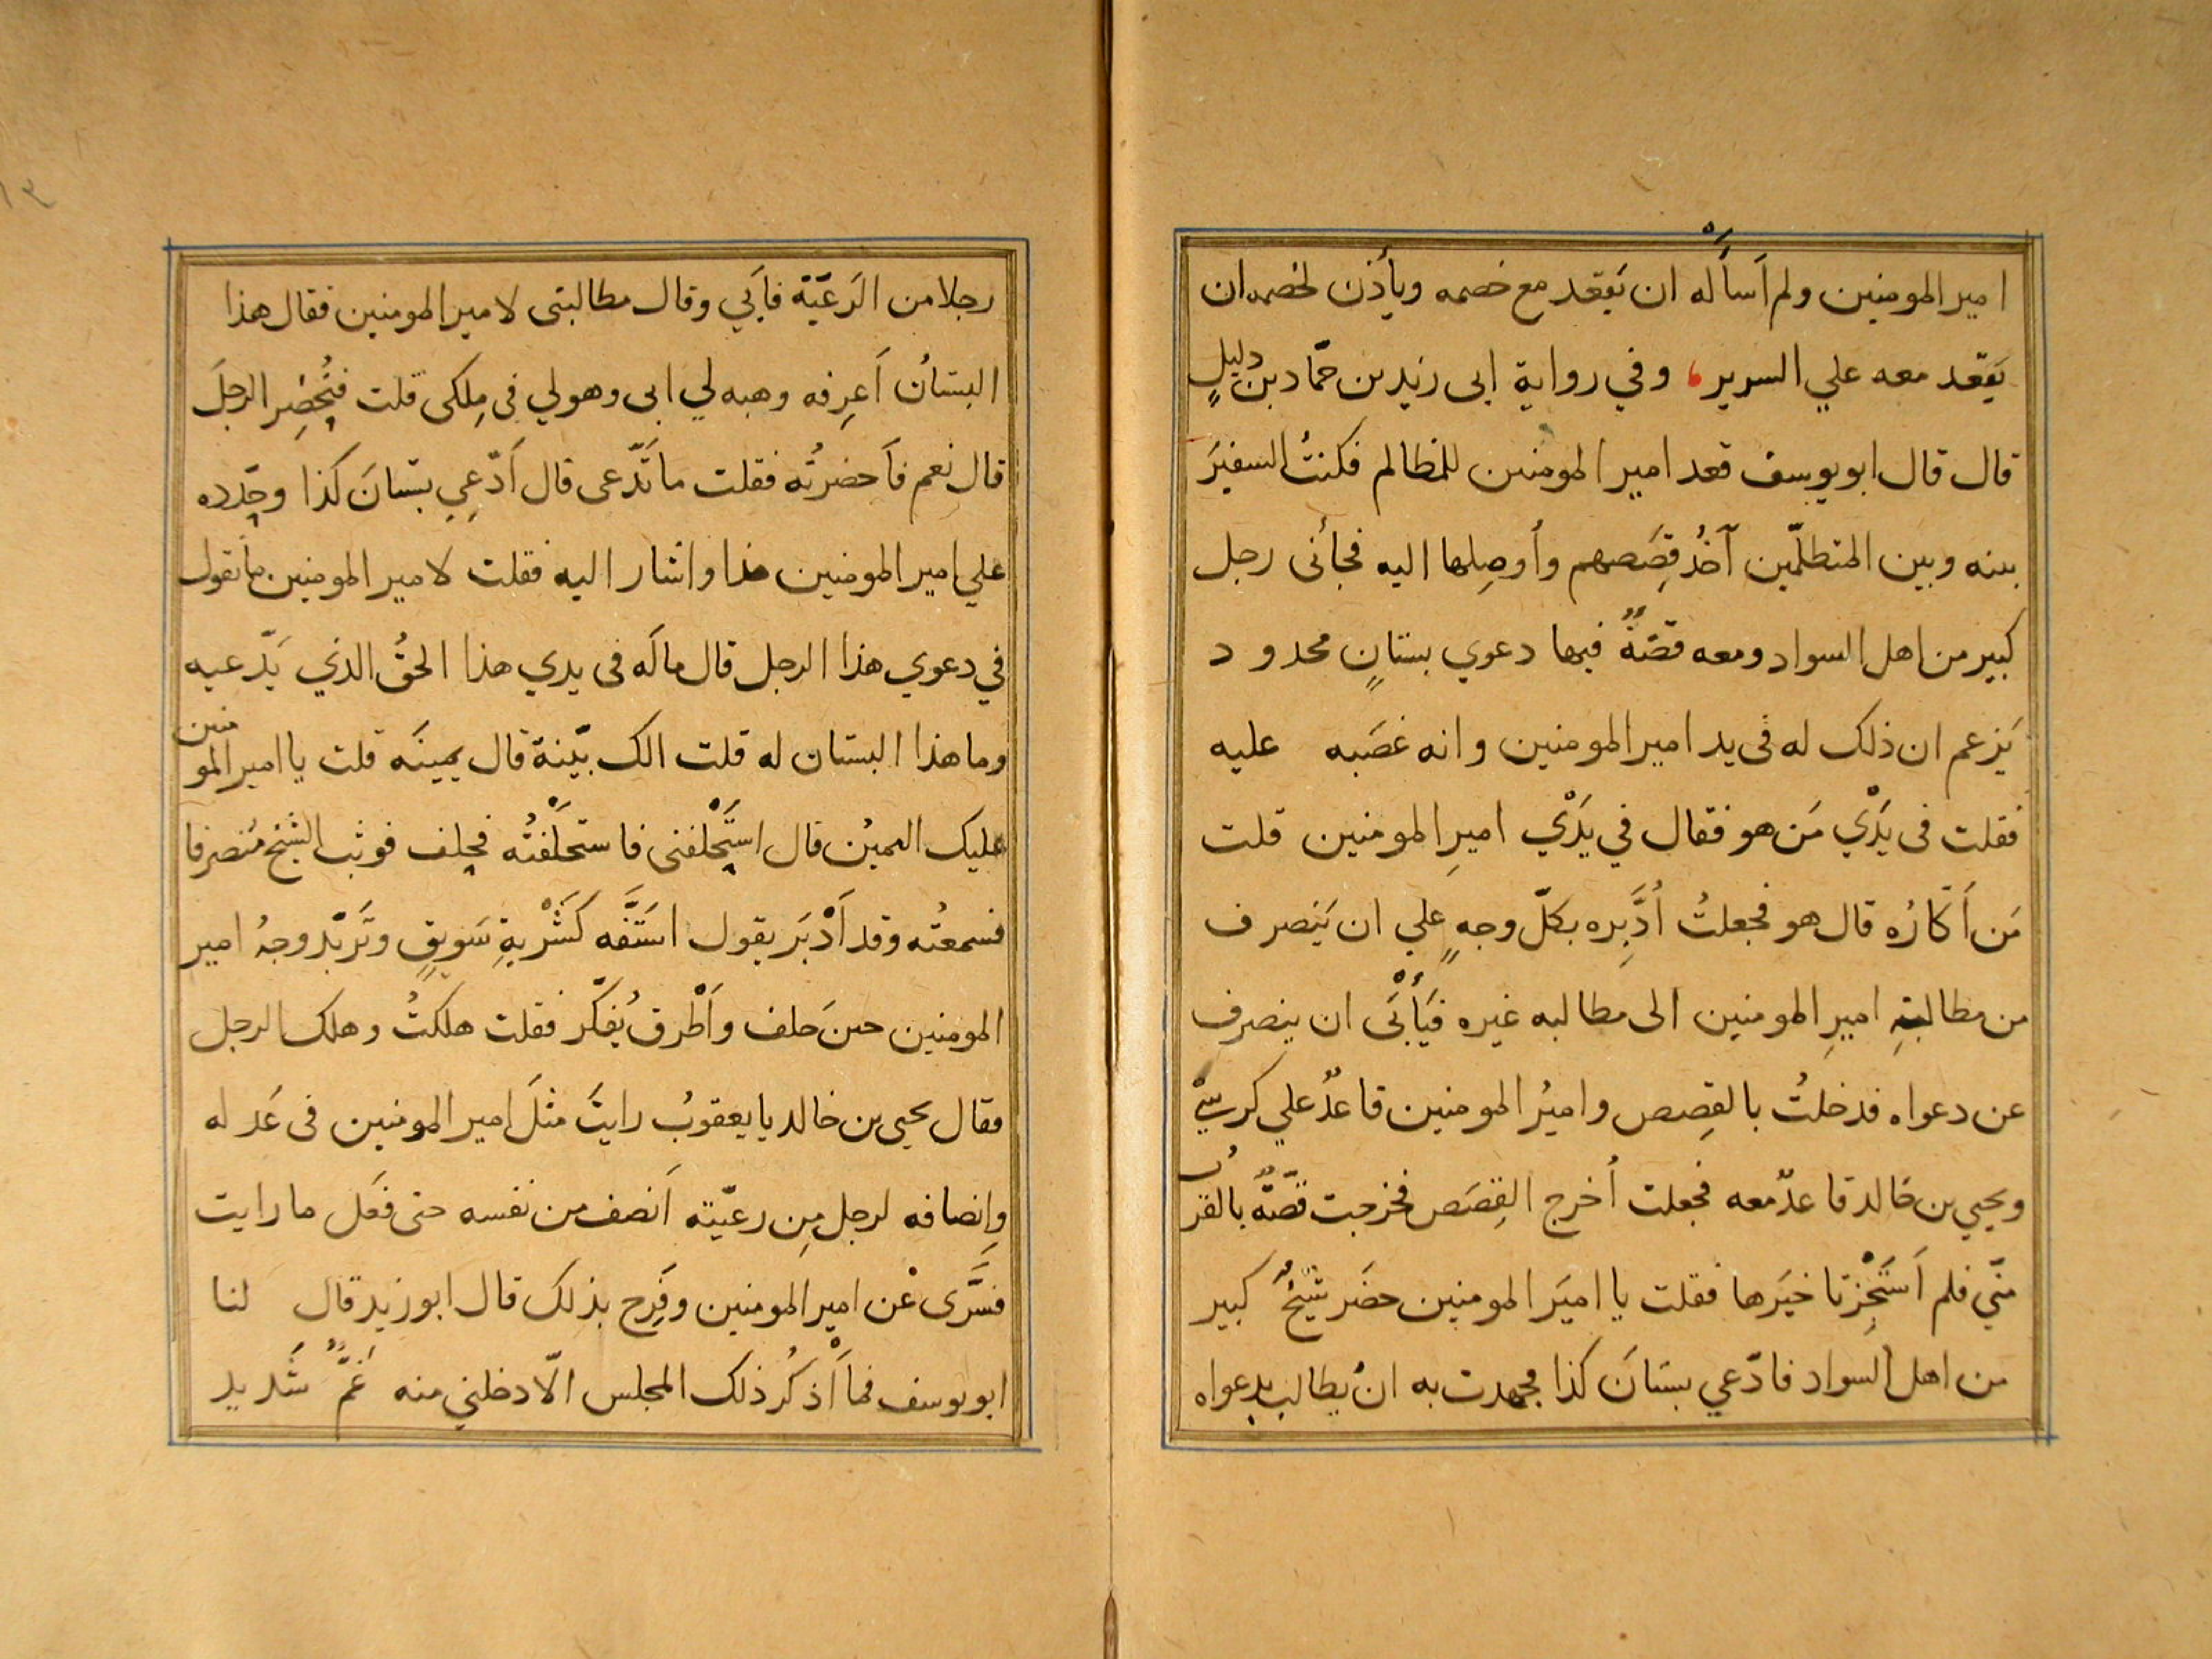 امير المومنين ولم اَسأَلْه ان يَقعد مع خصمه ويأذن لخصمه ان
يَقعد معه علي السرير، وفي رواية ابى زيد بن حمّاد بن دليلٍ
قال قال ابو يوسف قعد امير المومنين للمظالم فكنتُ السفيرَ
بينه وبين المتظلّمين آخذُ قِصَصهم وأوصِلها اليه فجأنى رجل
كبير من اهل السواد ومعه قصّةٌ فيها دعوي بستانٍ محدود
يَزعم ان ذلك له فى يد امير المومنين وانه غصَبه عليه
فقلت فى يَدَيْ مَن هو فقال في يدَيْ اميرِ المومنين قلت
مَن اَكّارُه قال هو فجعلتُ اُدَبِّره بكلّ وجهٍ علي ان يَنصرف
من مطالبتهِ اميرِ المومنين الى مطالبه غيره فيَأْبَى ان ينصرف
عن دعواه فدخلتُ بالقِصص واميرُ المومنين قاعدٌ علي كرسيّ
ويحيي بن خالد قاعدٌ معه فجعلت اُخرج القِصَص فخرجت قصّةٌ بالقرب
منّي فلم اَسْتَجِز تاخيَرها فقلت يا اميَر المومنين حضَر شيخٌ كبير
من اهل السواد فادّعي بستانَ كذا فجهدت به انْ يطالب بدعواه
١٣
رجلا من الرَعيّة فاَبي وقال مطالبتى لامير المومنين فقال هذا
البستانُ اَعرِفه وهبه لي ابى وهو لي فى مِلكى قلت فتُحضِر الرجلَ
قال نعم فاَحضرتُه فقلت ما تَدّعى قال اَدّعِي بستانَ كذا وحدّده
علي امير المومنين هذا واشار اليه فقلت لامير المومنين ما تقول
في دعوي هذا الرجل قال ما لَه فى يدي هذا الحقُ الذي يَدّعيه
وما هذا البستان له قلت الك بيّنة قال يمينَه قلت يا امير المومنين
عليك اليمينُ قال استَحْلفنى فاستحلَفْتُه فحلف فوثب الشيخ مُنصرفا
فسمعتُه وقد اَدْبَر يقول استَفّه كشَرْبةِ سَويقٍ وتَربّد وجهُ امير
المومنين حينَ حلف واَطْرق يُفكّر فقلت هلكتُ وهلك الرجل
فقال يحيى بن خالد يا يعقوبُ رايتَ مثلَ امير المومنين فى عَدله
وإنصافه لرجل مِن رعيّته اَنصف من نفسه حتى فعَل ما رايت
فسَرَّى عْن امير المومنين وفَرِح بذلك قال ابو زيد قال لنا
ابو يوسف فما اَذْكرُ ذلك المجلس الّا دخلني منه غمٌّ شَديد